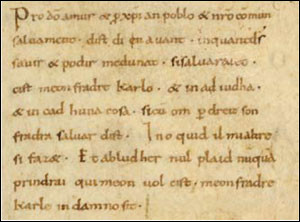 Pro dō amur & ꝓ xp̄ian poblo & nr̄o cōmun
saluament. dist di en auant. inquantdſ
sauir & podir medunat. sisaluaraieo.
cist meon fradre Karlo. & in ad iudha.
& in cad huna cosa. sicū om ꝑ dreit son
fradra saluar dist. Ino quid il mialtre
si faz&. Et abludher nul plaid nūquā
prindrai qui meon uol cist. meon fradre
Karle in damno sit.